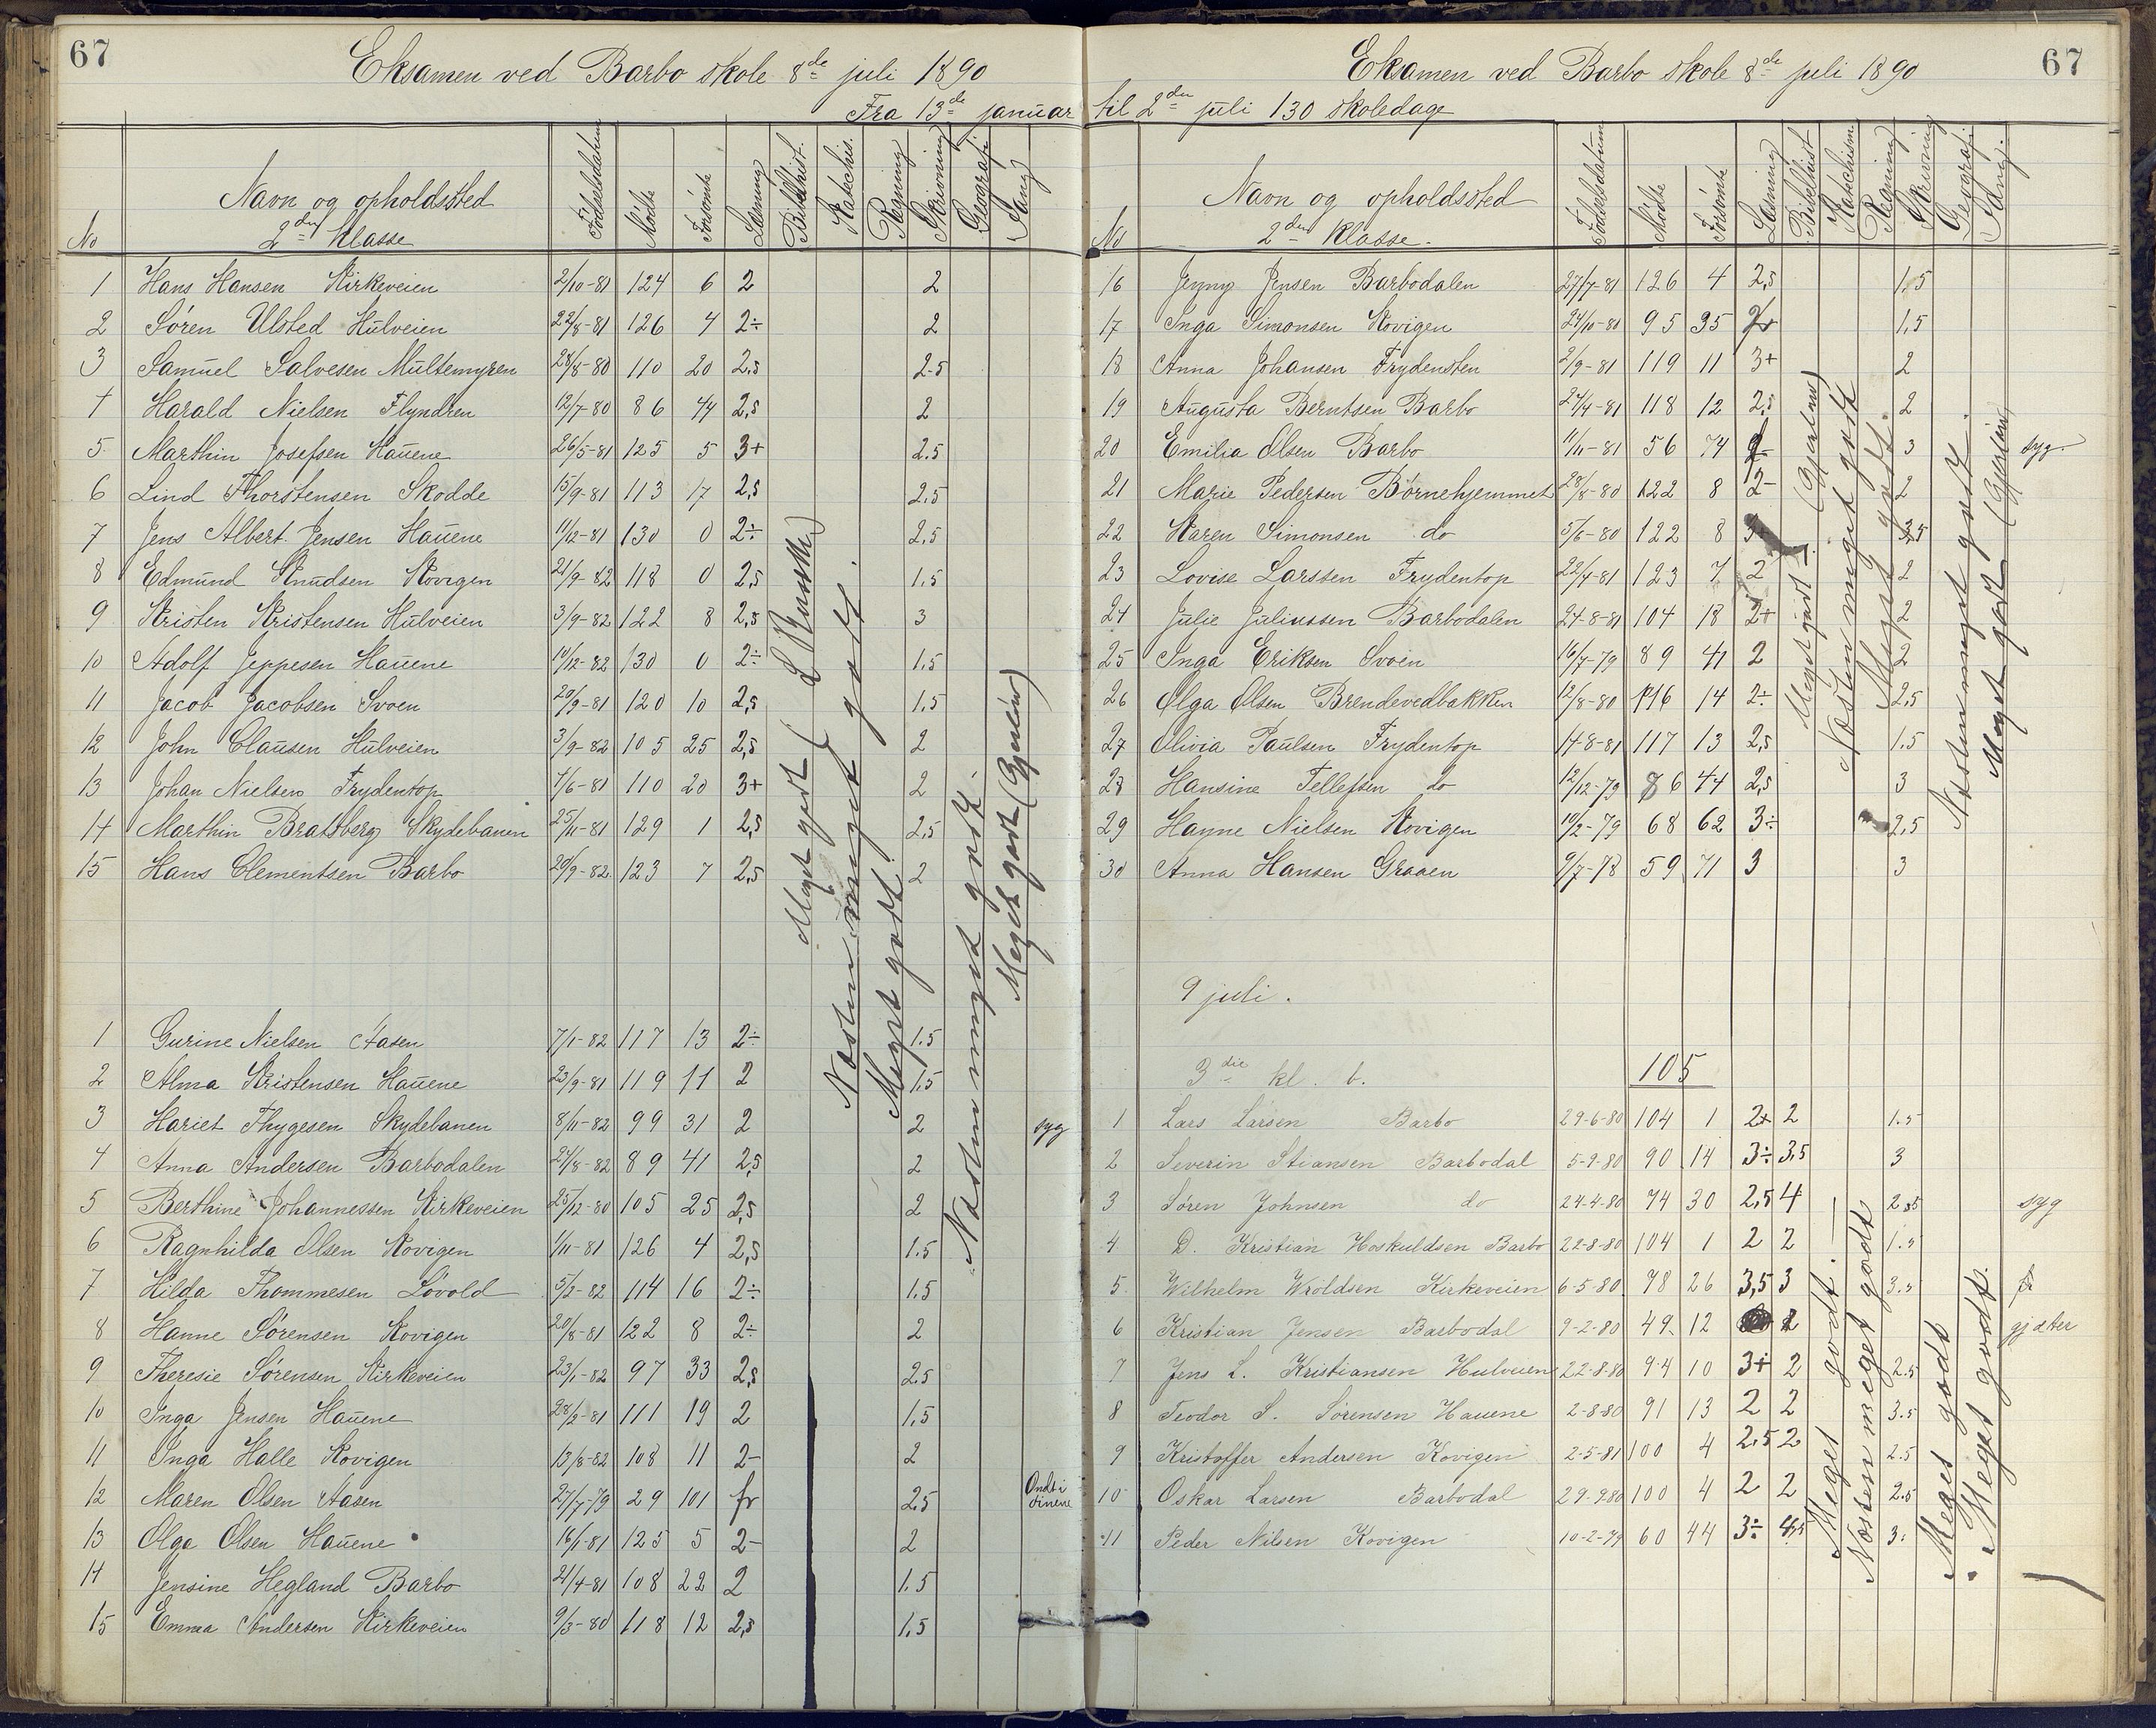 67
Eksamen ved Barbo skole 8de juli 1890
Fra 13de januar
No Navn og opholdssted Fødselsdatum Mødte Forsømte Læsning Bibelhist. Katechis. Regning Skrivning Geografi Sang
2den Klasse
1 Hans Hansen Kirkeveien 2/10-81 124 6 2 2
2 Søren Ulsted Hulveien 22/8-81 126 4 2÷ 2
3 Samuel Salvesen Multemyren 28/8-80 110 20 2,5 2.5
4 Harald Nielsen Flyndren 12/7-80 86 44 2,5 2
5 Marthin Josefsen Hauene 26/5-81 125 5 3+ 2.5
6 Lind Thorstensen Skodde 15/9-81 113 17 2,5 2,5
7 Jens Albert Jensen Hauene 11/12-81 130 0 2÷ 2,5
8 Edmund Knudsen Kovigen 21/9-82 118 0 2,5 1.5
9 Kristen Kristensen Hulveien 3/9-82 122 8 2,5 3
10 Adolf Jeppesen Hauene 10/12-82 130 0 2÷ 1.5
11 Jacob Jacobsen Svoen 20/9-81 120 10 2,5 1,5
12 John Clausen Hulveien 3/9-82 105 25 2,5 2
13 Johan Nielsen Frydentop 4/6-81 110 20 3+ 2
14 Marthin Bratsberg Skydebanen 25/11-81 129 1 2,5 2,5
15 Hans Clementsen Barbo 20/9-82 123 7 2,5 2
Meget godt
Næsten meget godt.
Meget godt.
Næsten meget godt.
Meget godt (Gjeruløw)
1 Gurine Nielsen Aasen 7/1-82 117 13 2÷ 1.5
2 Alma Kristensen Hauene 23/9-81 119 11 2 1.5
3 Hariet Thygesen Skydebanen 8/11-82 99 31 2 2 syg
4 Anna Andersen Barbodalen 24/8-82 89 41 2,5 2
5 Berthine Johannessen Kirkeveien 25/12-80 105 25 2,5 2
6 Ragnhilda Olsen Kovigen 1/11-81 126 4 2,5 1.5
7 Hilda Thommesen Løvold 5/2-82 114 16 2÷ 1.5
8 Hanne Sørensen Kovigen 20/8-81 122 8 2÷ 2
9 Theresie Sørensen Kirkeveien 23/1-82 97 33 2,5 2.5
10 Inga Jensen Hauene 28/2-81 111 19 2 1,5
11 Inga Halle Kovigen 13/8-82 108 11 2- 2
12 Maren Olsen Aasen 27/7-79 29 101 fr 2.5 Ondt i øinene
13 Olga Olsen Hauene 16/1-81 125 5 2- 2
14 Jensine Hegland Barbo 21/4-81 108 22 2 1.5
15 Emma Andersen Kirkeveien 9/3-80 118 12 2,5 1,5
67
Eksamen ved Barbo skole 8de juli 1890
til 2den juli 130 skoledage
No Navn og opholdssted Fødselsdatum Mødte Forsømte Læsning Bibelhist. Katechism. Regning Skrivning Geografi Sang.
2den Klasse.
16 Jenny Jensen Barbodalen 27/7-81 126 4 2,5 1,5
17 Inga Simonsen Kovigen 24/10-80 95 35 1,5
18 Anna Johansen Frydensten 2/9-81 119 11 3+ 2
19 Augusta Berntsen Barbo 24/4-81 118 12 2,5 2
20 Emilia Olsen Barbo 11/11-81 56 74 3 syg.
21 Marie Pedersen Børnehjemmet 28/8-80 122 8 2- 2
22 Karen Simonsen do 5/6-80 122 8 3
23 Lovise Larssen Frydentop 22/4-81 123 7 2 2
24 Julie Juliussen Barbodalen 24-8-81 104 18 2+ 2
25 Inga Eriksen Svoen 16/7-79 89 41 2 2
26 Olga Olsen Brendevedbakken 12/8-80 116 14 2÷ 2,5
27 Olivia Paulsen Frydentop 14-8-81 117 13 2,5 1.5
28 Hansine Tellefsen do 12/12-79 86 44 2,5 3
29 Hanne Nielsen Kovigen 10/2-79 68 62 3÷ 2,5
30 Anna Hansen Graaen 9/7-78 59 71 3 3
Meget godt
Næsten meget godt
Meget godt.
Næsten meget godt.
Meget godt
9 juli.
3die kl. b. 105
1 Lars Larsen Barbo 29-6-80 104 1 2+ 2 1.5
2 Severin Stiansen Barbodal 5-9-80 90 14 3÷ 3,5 3
3 Søren Johnsen do 24-4-80 74 30 2,5 4 2.5 syg
4 D. Kristian Hoskuldsen Barbo 22-8-80 104 1 2 2 1.5
5 Wilhelm Wroldsen Kirkeveien 6-5-80 78 26 3,5 3 3.5
6 Kristian Jensen Barbodal 9-2-80 49 12 2 gjæter
7 Jens L. Kristiansen Hulveien 22-8-80 94 10 3+ 2 2.5
8 Teodor S. Sørensen Hauene 2-8-80 91 13 2 2 3.5
9 Kristoffer Andersen Kovigen 2-5-81 100 4 2,5 2 2.5
10 Oskar Larsen Barbodal 29-9-80 100 4 2 2 2.5
11 Peder Nilsen Kovigen 10-2-79 60 44 3÷ 4,5 3
Meget godt.
Næsten meget godt
Meget godt
Meget godt.